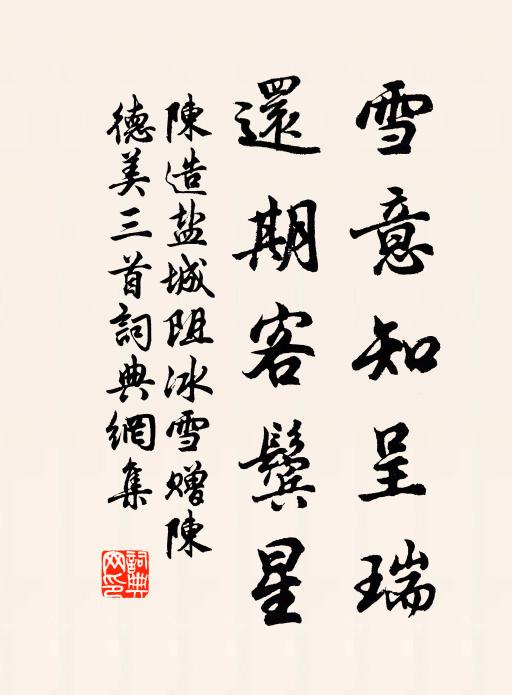 雪意知呈瑞
還期客鬢星
陳造盐城阻冰雪赠陳
德美三首詞典網集
詞典網印